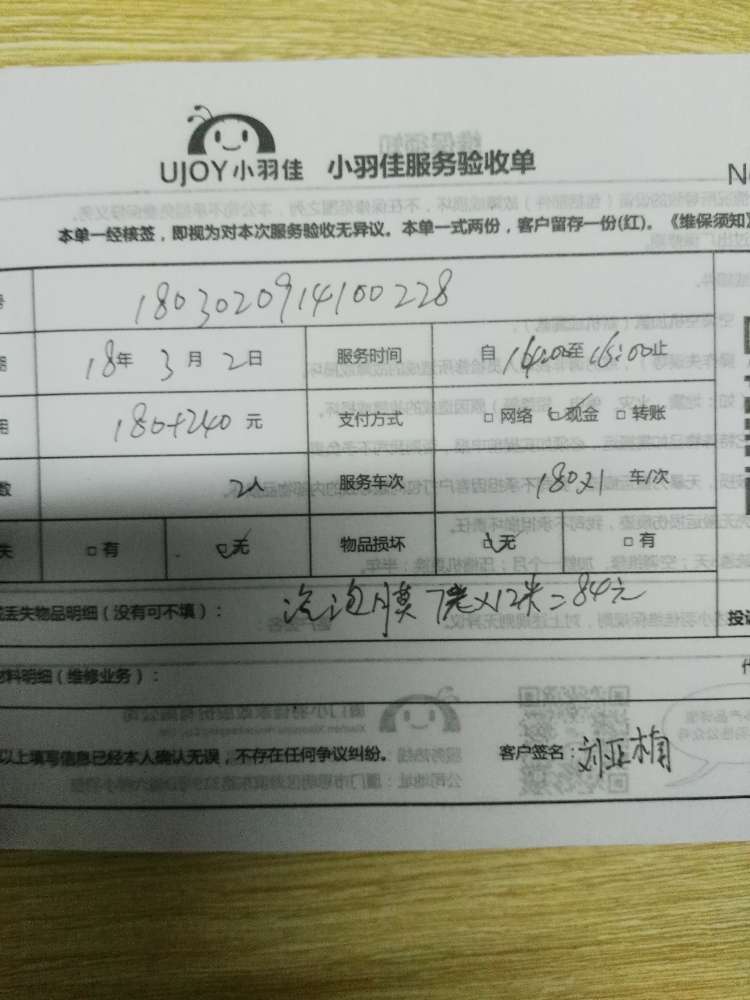 UJOY小羽佳 小羽佳服务验收单
本单一经核签，即视为对本次服务验收无异议。本单一式两份，客户留存一份(红)。《维保须知》
1803020914100228
18年 3月 2日 服务时间 自 14:00至 16:00止
180+240 元 支付方式 □ 网络 □ 现金 □ 转账
数 2人 服务车次 180×1 车/次
失 □ 有 □ 无 物品损坏 □ 无 □ 有
丢失物品明细（没有可不填）： 泡膜 7元×12米=84元 投诉
材料明细（维修业务）：
以上填写信息已经本人确认无误，不存在任何争议纠纷。 客户签名：刘亚楠